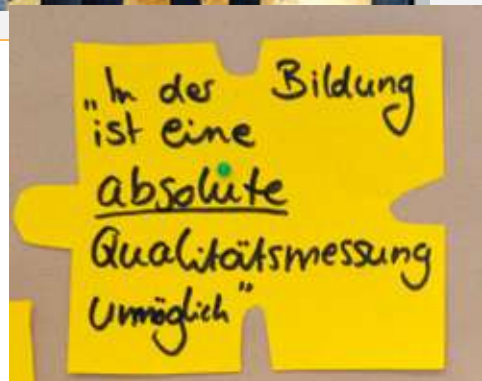 „In der Bildung
ist eine
absolute
Qualitätsmessung
unmöglich"